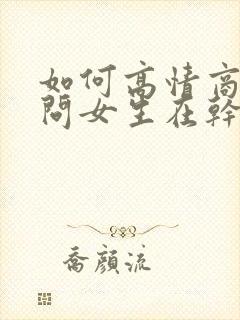 如何高情商
問女生在幹
喬顏流